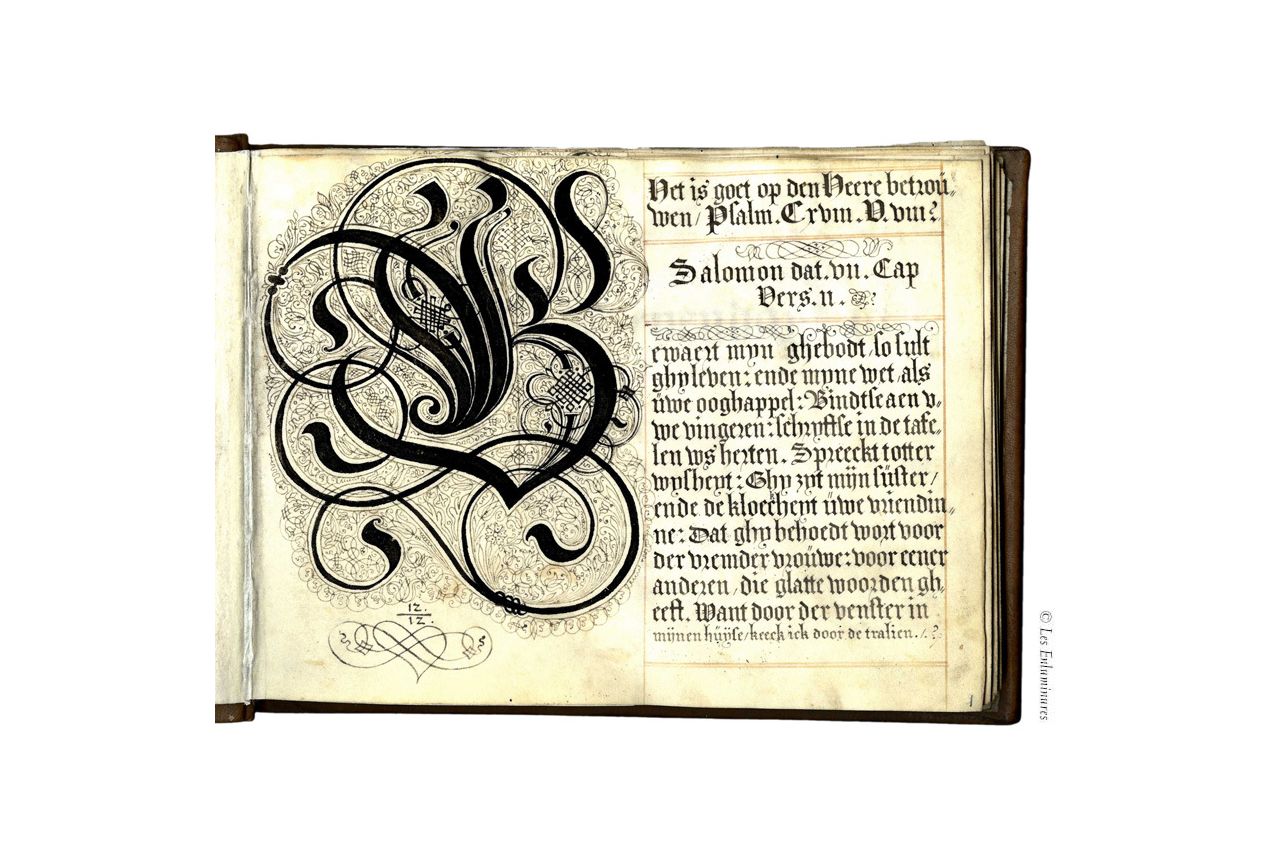 B
12.
12.
Het is goet op den Heere betroü⸗
wen / Psalm. Cxviii. V. viii.
Salomon dat. vii. Cap
Vers. ii.
ewaert myn ghebodt / so sult
ghy leven: ende myne wet / als
üwe ooghappel: Bindtse aen v⸗
we vingeren: schryftse in de tafe⸗
len ws herten. Spreeckt totter
wysheyt: Ghy zyt mijn süster /
ende de kloeckheyt üwe vriendin⸗
ne: Dat ghy behoedt wort voor
der vremder vroüwe: voor eener
anderen / die glatte woorden gh⸗
eeft. Want door der venster in
mijnen hüÿse / keeck ick door de tralien. /.
1
© Les Enluminures